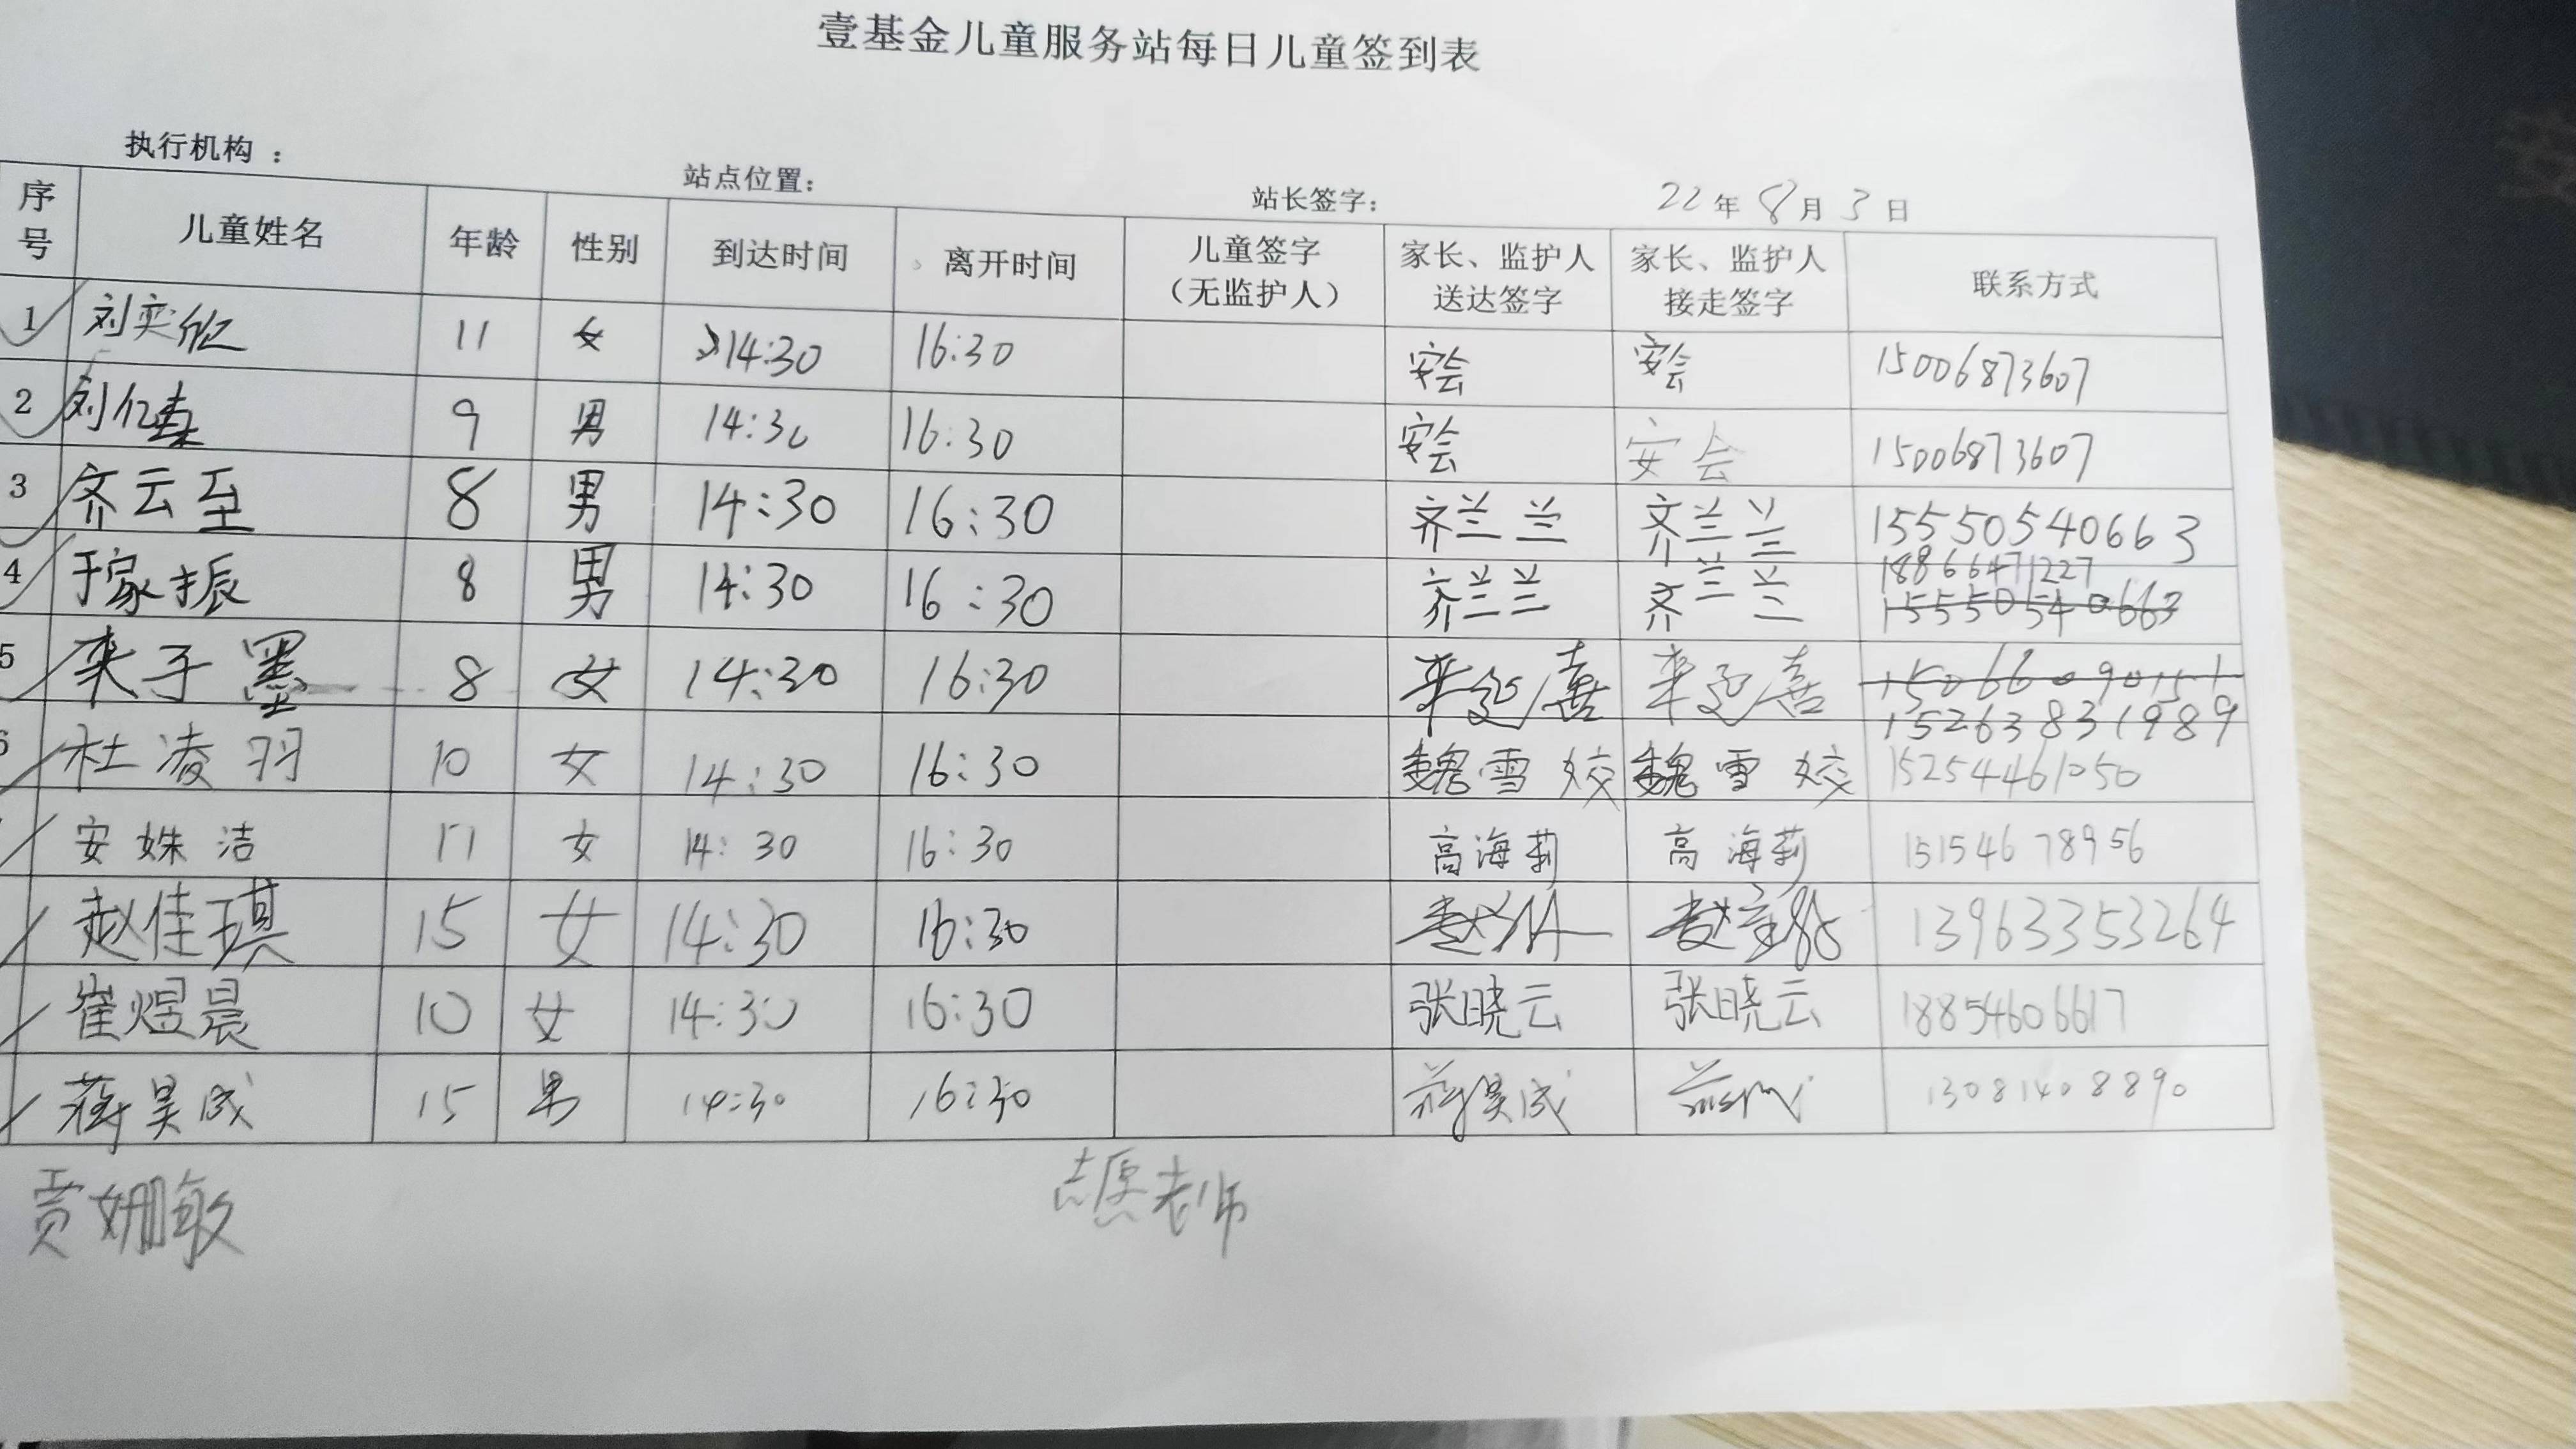 壹基金儿童服务站每日儿童签到表
执行机构：　站点位置：　站长签字：　22年8月3日
序号　儿童姓名　年龄　性别　到达时间　离开时间　儿童签字（无监护人）　家长、监护人送达签字　家长、监护人接走签字　联系方式
1　刘奕　11　女　14:30　16:30　安会　安会　15006873607
2　刘亿　9　男　14:30　16:30　安会　安会　15006873607
3　齐云至　8　男　14:30　16:30　齐兰兰　齐兰兰　15550540663
4　于家振　8　男　14:30　16:30　齐兰兰　齐兰兰　18866471227　15550540663
5　来子墨　8　女　14:30　16:30　来延喜　来延喜　15066090151　15263831989
6　杜凌羽　10　女　14:30　16:30　魏雪姣　魏雪姣　15254461050
安姝洁　11　女　14:30　16:30　高海莉　高海莉　15154678956
赵佳琪　15　女　14:30　16:30　赵　赵　13963353264
崔煜晨　10　女　14:30　16:30　张晓云　张晓云　18854606617
蒋昊成　15　男　14:30　16:30　蒋昊成　13081408890
贾姗敏　志愿老师